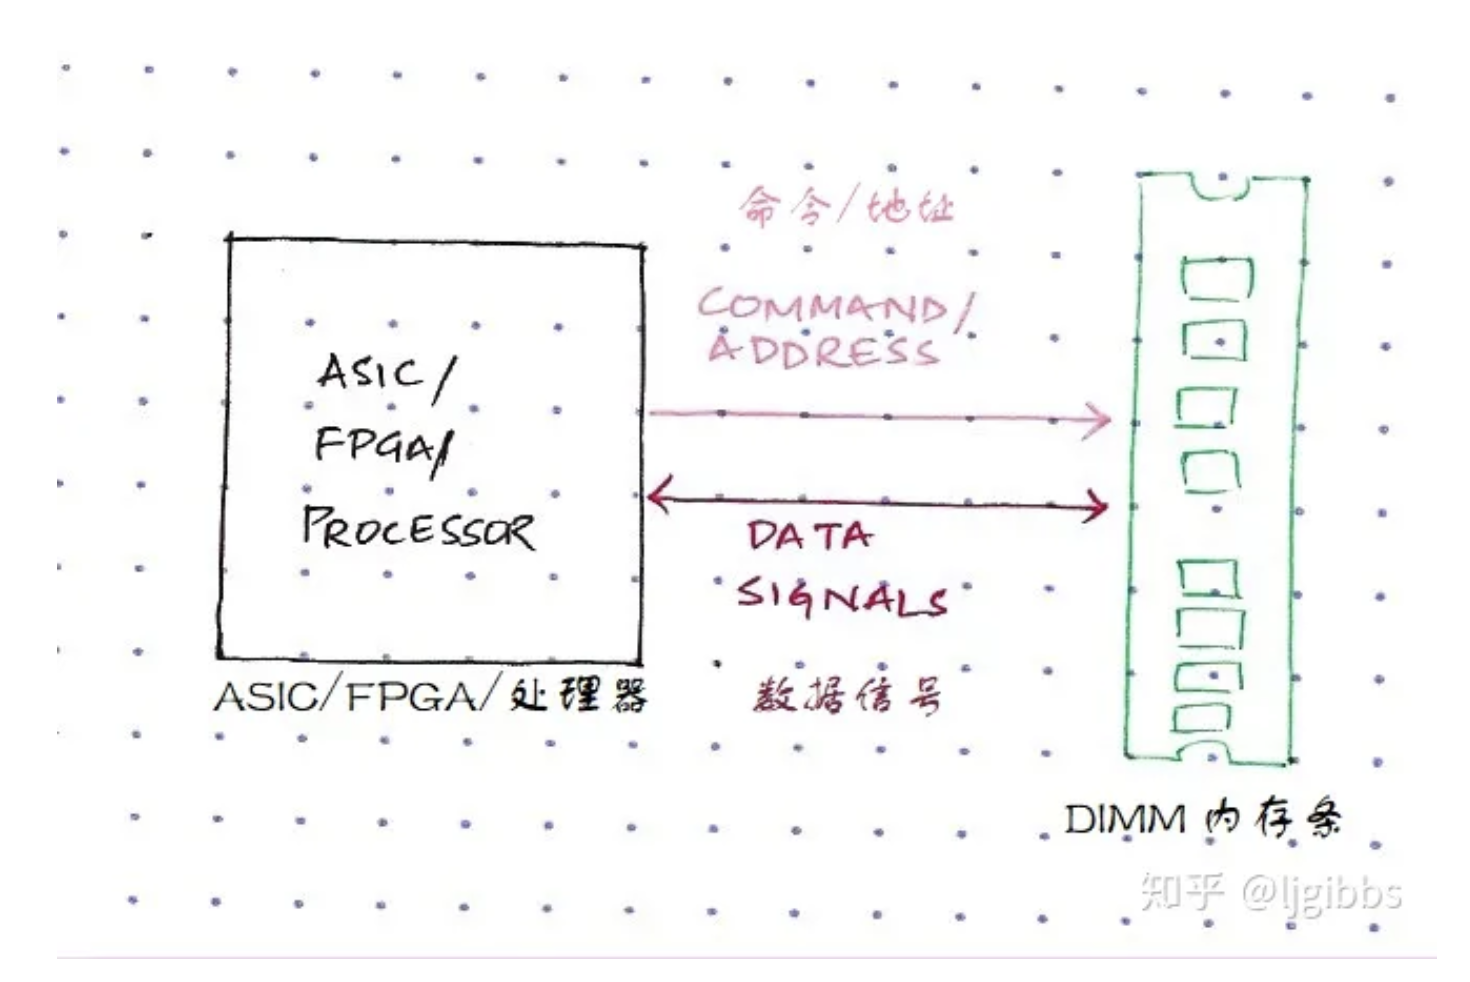 命令/地址
COMMAND/
ADDRESS
ASIC/
FPGA/
PROCESSOR
DATA
SIGNALS
ASIC/FPGA/处理器
数据信号
DIMM 内存条
知乎 @ljgibbs